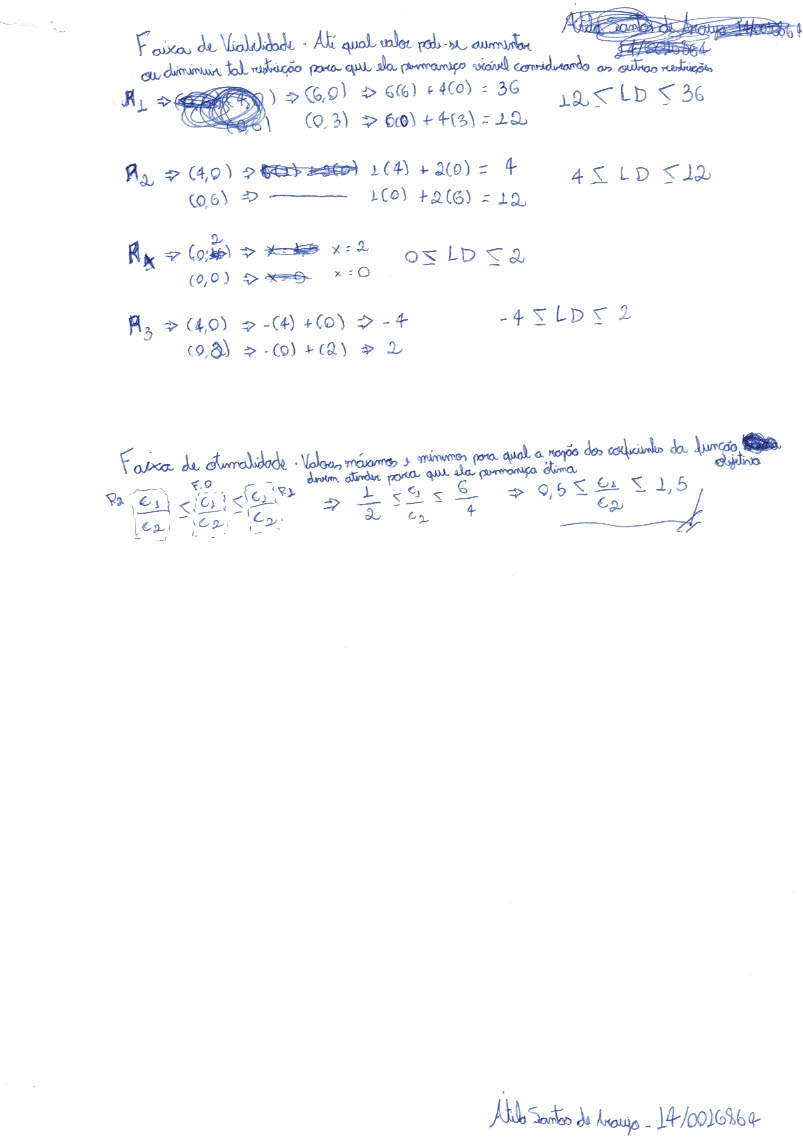 Átila Santos de Araujo 14/0016864
14/0016864
Faixa de Viabilidade. Até qual valor pode-se aumentar
ou diminuir tal restrição para que ela permaneça viável considerando as outras restrições
R1 ⇒ ⇒ (6,0) ⇒ 6(6) + 4(0) = 36 12 ≤ LD ≤ 36
(0,3) ⇒ 6(0) + 4(3) = 12
R2 ⇒ (4,0) ⇒ 1(4) + 2(0) = 4 4 ≤ LD ≤ 12
(0,6) ⇒ —— 1(0) + 2(6) = 12
R4 ⇒ (0,2) ⇒ x = 2 0 ≤ LD ≤ 2
(0,0) ⇒ x = 0
R3 ⇒ (4,0) ⇒ -(4) + (0) ⇒ -4 -4 ≤ LD ≤ 2
(0,2) ⇒ -(0) + (2) ⇒ 2
Faixa de otimalidade. Valores máximos e mínimos para qual a razão dos coeficientes da função objetivo
devem atender para que ela permaneça ótima
R2 c1/c2 ≤ F.O c1/c2 ≤ c1/c2 R1 ⇒ 1/2 ≤ c1/c2 ≤ 6/4 ⇒ 0,5 ≤ c1/c2 ≤ 1,5
Átila Santos de Araujo - 14/0016864